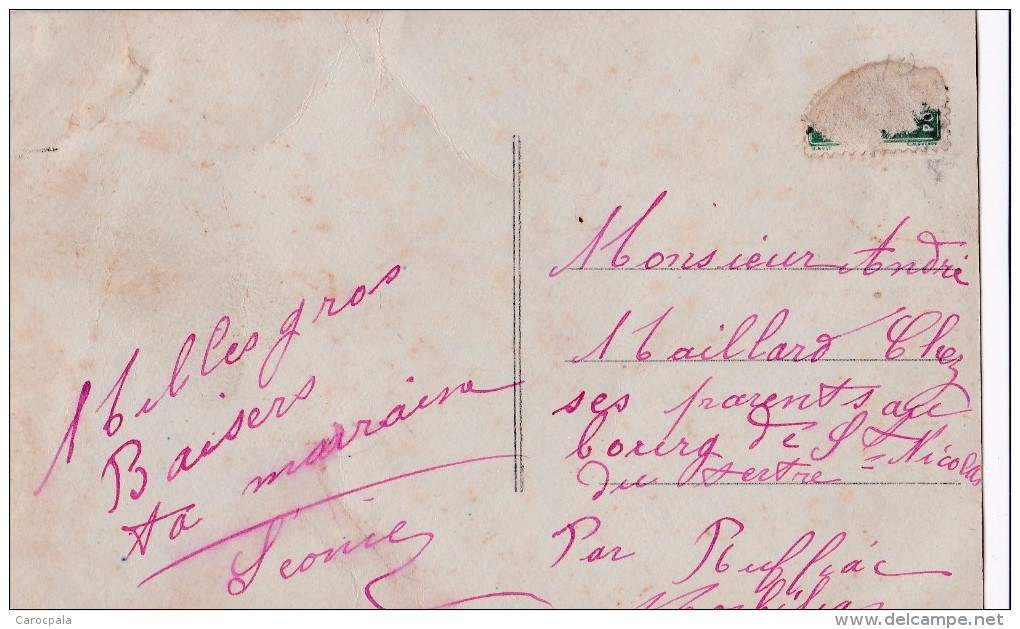 Milles gros
Baisers
ta marraine
Léonie
Monsieur André
Maillard Chez
ses parents au
bourg de St Nicolas
du tertre
Par Ruffiac
Morbihan
Carocpala
delcampe.net